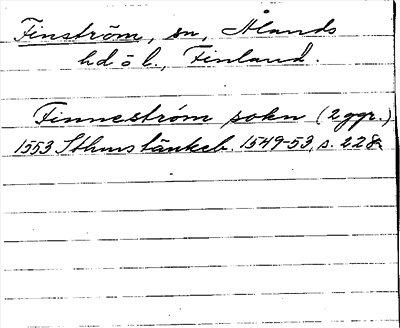 Finström, sn, Ålands
hd o l., Finland.
Finneström sokn (2 ggr.)
1553 Sthms tänkeb. 1549-53, s. 228.